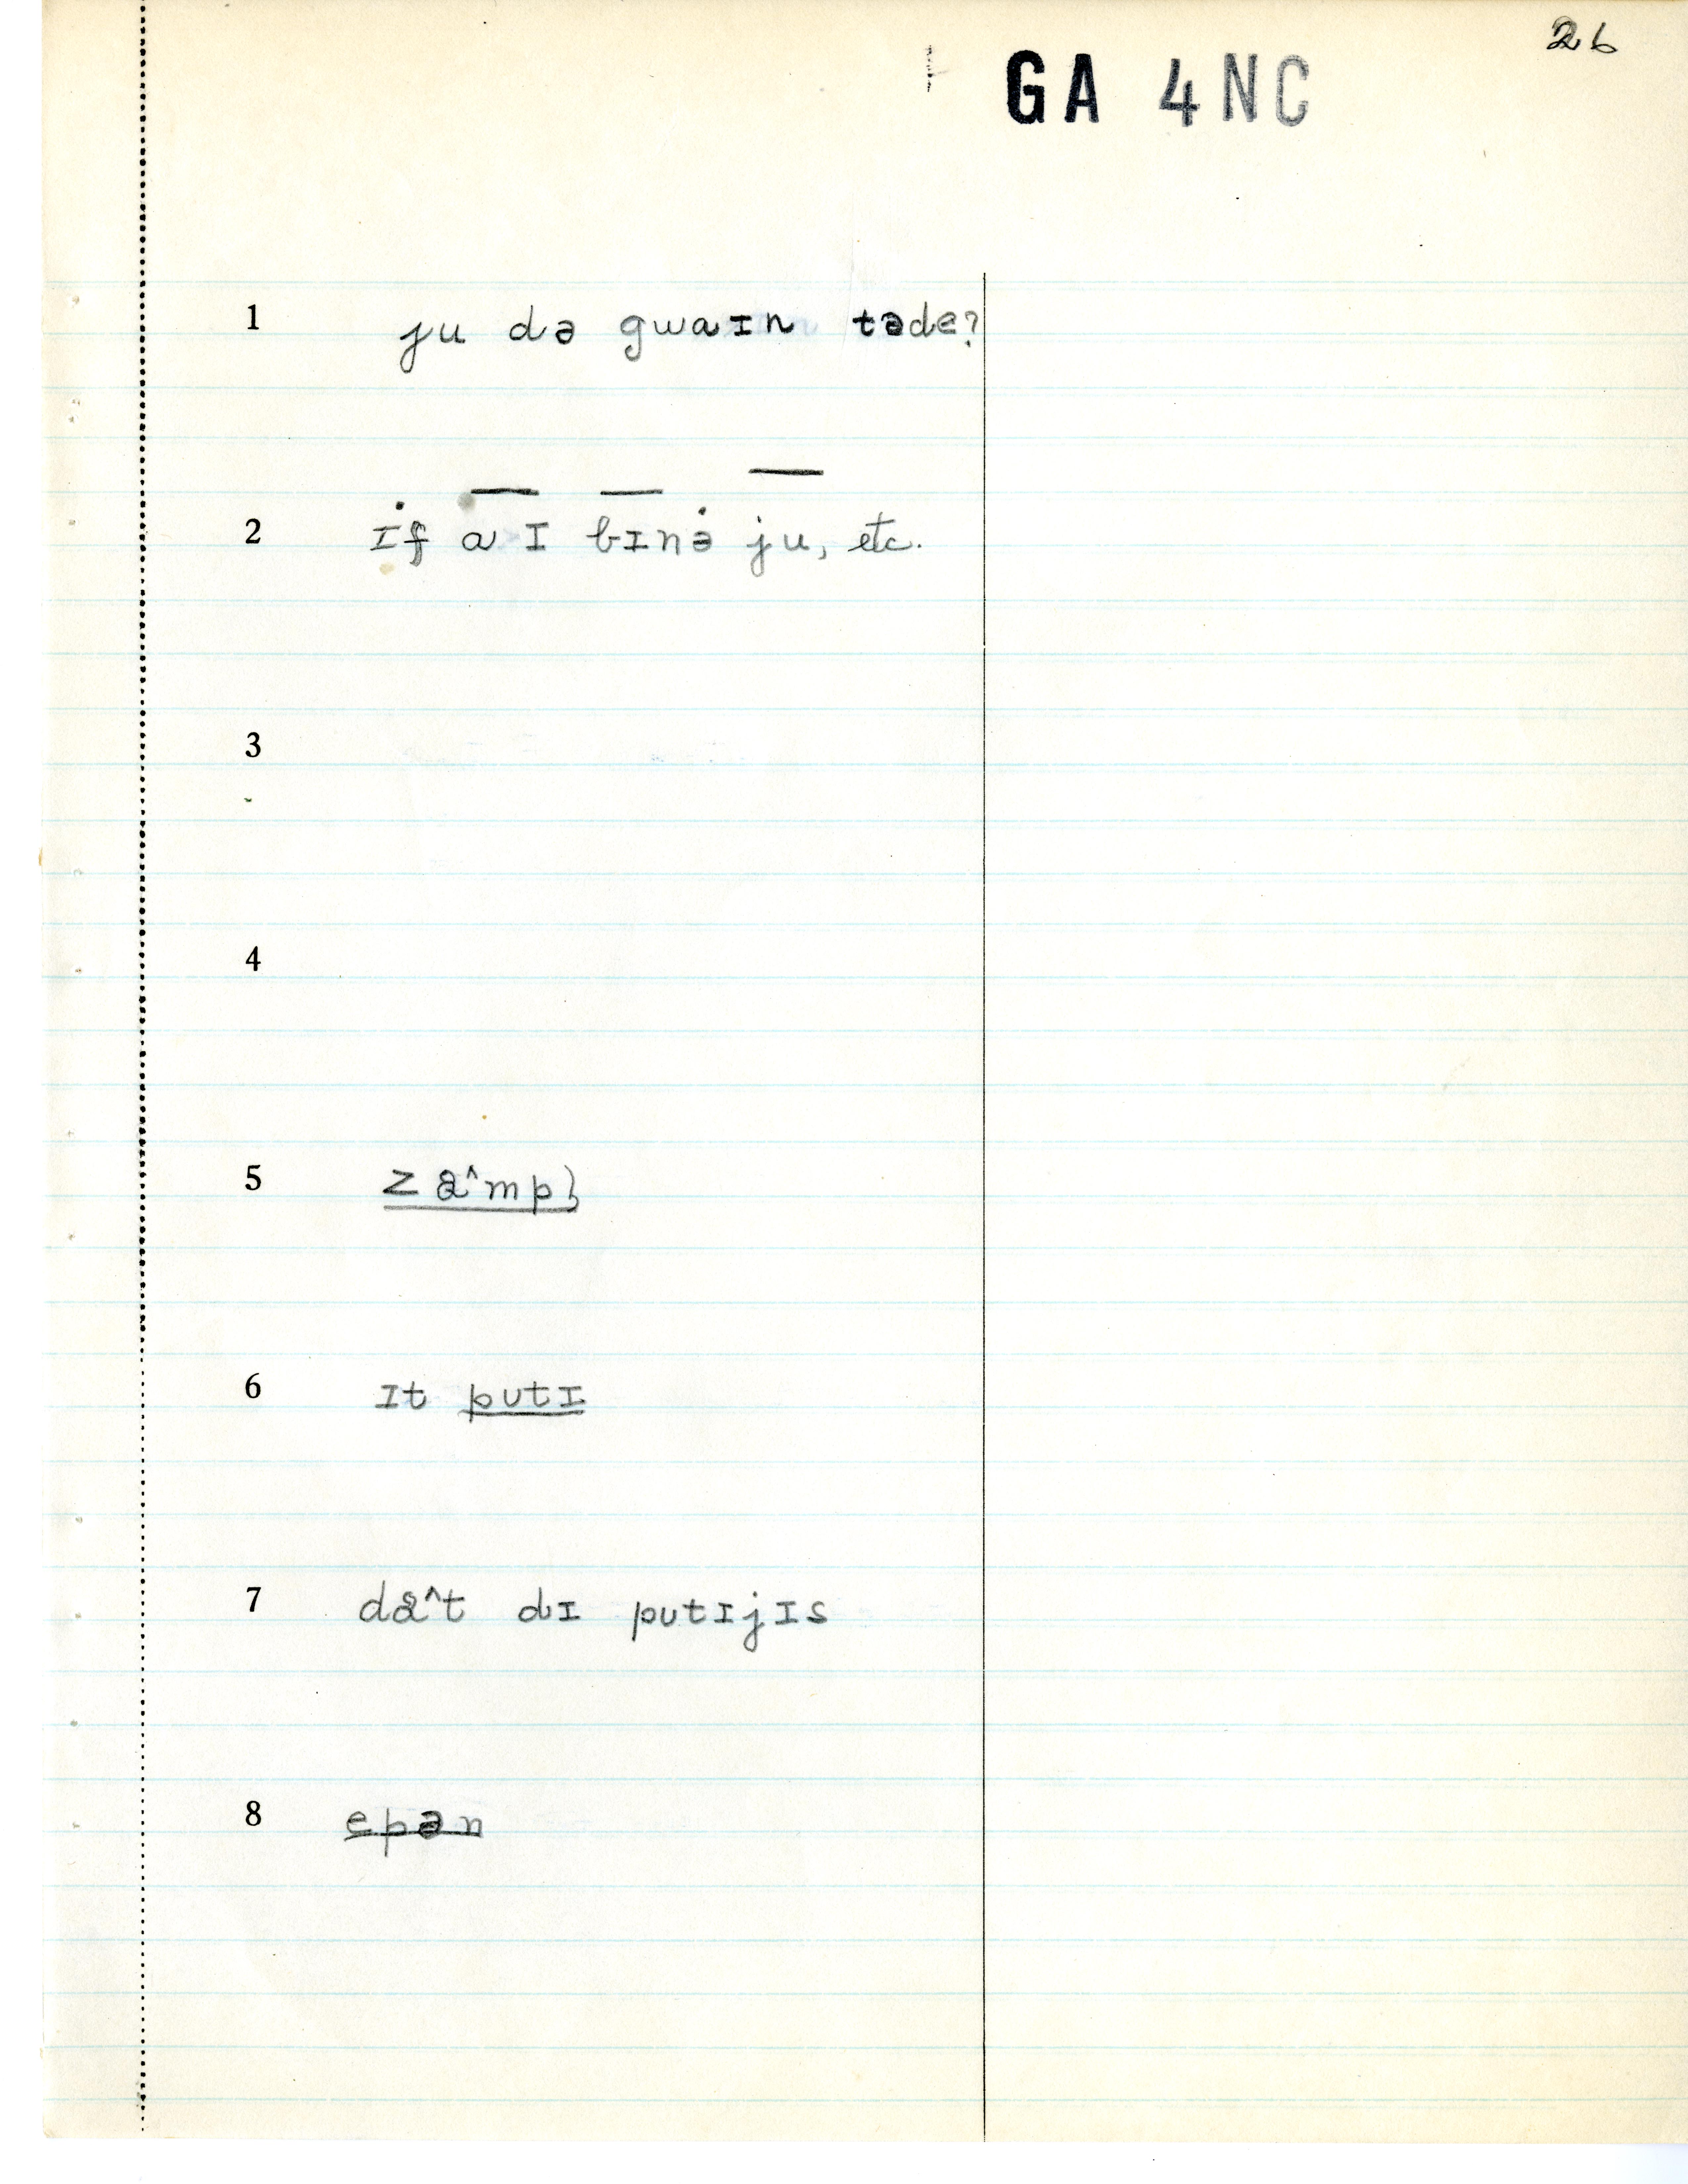 26
GA 4NC
1 ju də gwaɪn təde?
2 ɪf aɪ bɪnə ju, etc.
3
4
5 za^mpl̩
6 ɪt putɪ
7 da^t dɪ putɪjɪs
8 epən